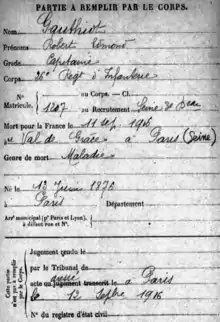 PARTIE À REMPLIR PAR LE CORPS.
Nom Gauthiot
Prénoms Robert Edmond
Grade Capitaine
Corps 36e Régt d'Infanterie
N° Matricule.
au Corps. — Cl.
1207 au Recrutement Seine
Mort pour la France le 11 sep 1916
Val de Grâce à Paris (Seine)
Genre de mort Maladie
Né le 13 Juin 1876
à Paris Département
Arrt municipal (pr Paris et Lyon),
à défaut rue et N°.
Cette partie n'est pas à remplir par le Corps.
Jugement rendu le
par le Tribunal de
acte ou jugement transcrit le à Paris
le 12 Septbre 1916
N° du registre d'état civil